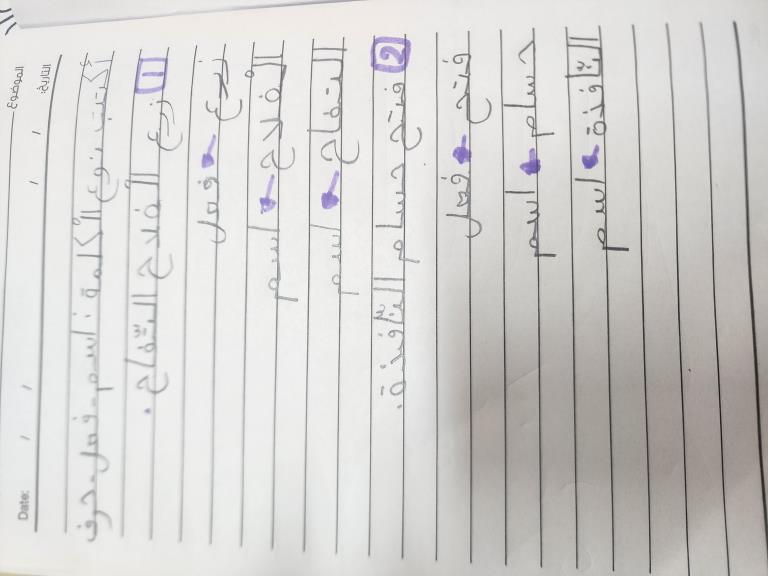 الموضوع:
التاريخ: / / Date: / /
أكتب نوع الكلمة: اسم - فعل - حرف
1 زرع الفلاح التفّاح.
زرع ← فعل
الفلاح ← اسم
التفاح ← اسم
2 فتح حسام النّافذة.
فتح ← فعل
حسام ← اسم
النّافذة ← اسم